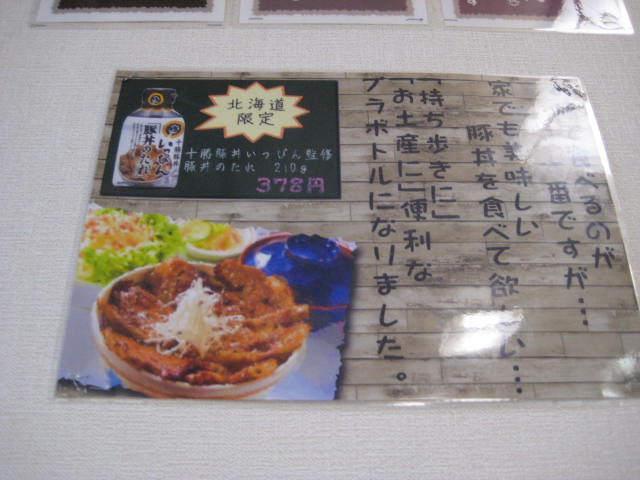 北海道
限定
十勝豚丼いっぴん監修
豚丼のたれ 210g
378円
十勝豚丼
いっぴん
豚丼のたれ
食べるのが
一番ですが…
家でも美味しい
豚丼を食べて欲しい…
「持ち歩きに」
「お土産に」便利な
プラボトルになりました。